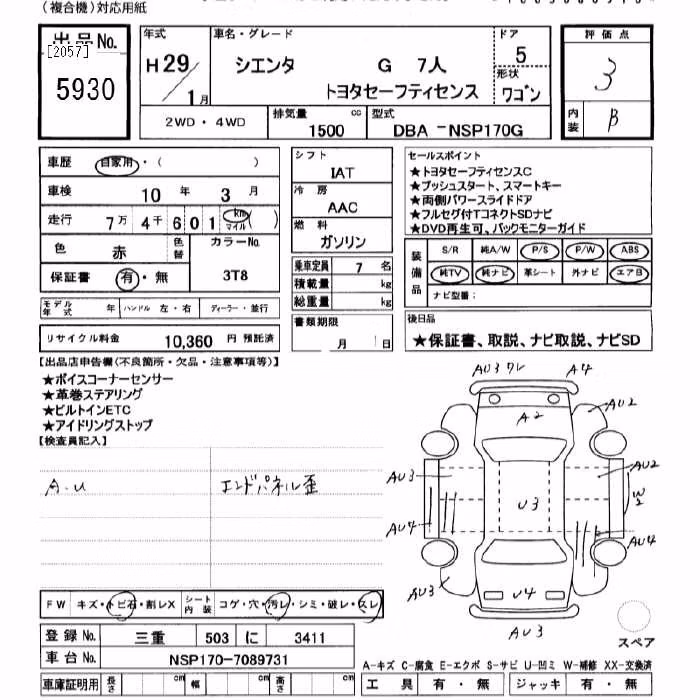 (複合機)対応用紙
出品No.
[2057]
5930
年式
H29/1月
車名・グレード
シエンタ G 7人
トヨタセーフティセンス
ドア
5
形状
ワゴン
評価点
3
内装
B
2WD・4WD
排気量
1500 cc
型式
DBA -NSP170G
車歴 自家用・( )
車検 10年 3月
走行 7万4千601 km マイル ( )
色 赤 色替
カラーNo.
3T8
保証書 有・無
モデル年式 年 ハンドル 左・右 ディーラー・並行
リサイクル料金 10,360 円 預託済
シフト
IAT
冷房
AAC
燃料
ガソリン
乗車定員 7 名
積載量 kg
総重量 kg
書類期限
月 日
セールスポイント
★トヨタセーフティセンスC
★プッシュスタート、スマートキー
★両側パワースライドドア
★フルセグ付TコネクトSDナビ
★DVD再生可、バックモニターガイド
装備品
S/R 純A/W P/S P/W ABS
純TV 純ナビ 革シート 外ナビ エアB
ナビ型番:
後日品
★保証書、取説、ナビ取説、ナビSD
【出品店申告欄(不良箇所・欠品・注意事項等)】
★ボイスコーナーセンサー
★革巻ステアリング
★ビルトインETC
★アイドリングストップ
【検査員記入】
A・U
エンドパネル歪
AU3 ワレ A4
A2
AU2
AU3
AU2
U3
W2
AU4
AU4
AU3
U4
AU3
スペア
FW キズ・トビ石・割レX シート内装 コゲ・穴・汚レ・シミ・破レ・スレ
登録No. 三重 503 に 3411
車台No. NSP170-7089731
車庫証明用 長さ cm 幅 cm 高さ cm
A-キズ C-腐食 E-エクボ S-サビ U-凹ミ W-補修 XX-交換済
工具 有・無 ジャッキ 有・無